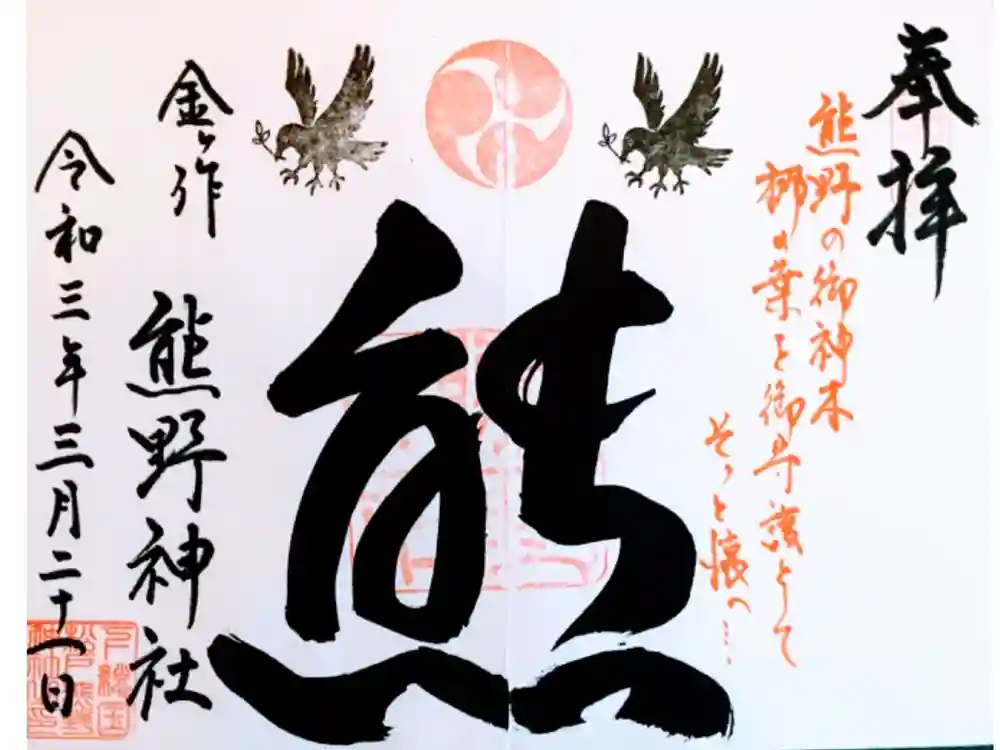 奉拝
熊野の御神木
梛の葉を御守護として
そっと懐へ…
熊
金ヶ作
熊野神社
令和三年三月二十一日